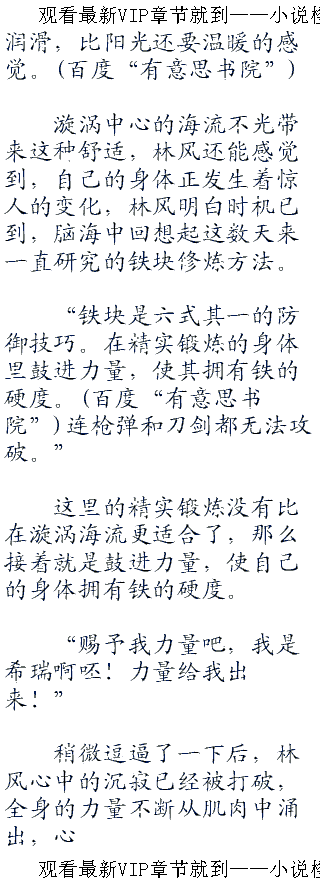 观看最新VIP章节就到——小说
润滑，比阳光还要温暖的感
觉。(百度“有意思书院”)
漩涡中心的海流不光带
来这种舒适，林风还能感觉
到，自己的身体正发生着惊
人的变化，林风明白时机已
到，脑海中回想起这数天来
一直研究的铁块修炼方法。
“铁块是六式其一的防
御技巧。在精实锻炼的身体
里鼓进力量，使其拥有铁的
硬度。(百度“有意思书
院”)连枪弹和刀剑都无法攻
破。”
这里的精实锻炼没有比
在漩涡海流更适合了，那么
接着就是鼓进力量，使自己
的身体拥有铁的硬度。
“赐予我力量吧，我是
希瑞啊呸！力量给我出
来！”
稍微逗逼了一下后，林
风心中的沉寂已经被打破，
全身的力量不断从肌肉中涌
出，心
观看最新VIP章节就到——小说